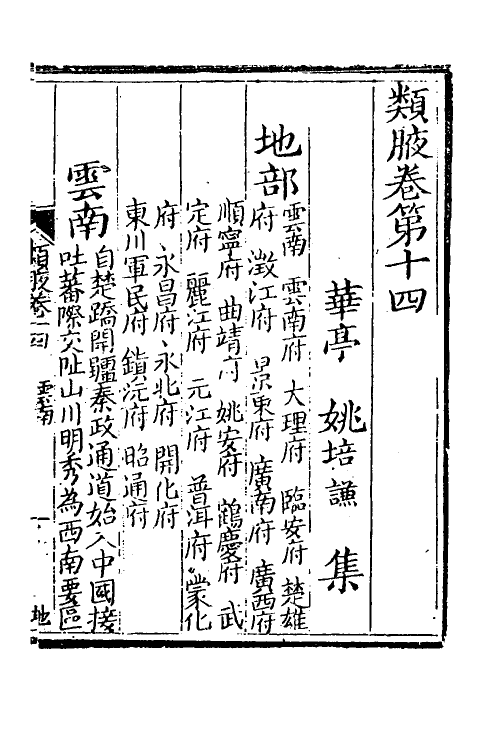 類腋卷第十四
華亭 姚培謙 集
地部
雲南 雲南府 大理府 臨安府 楚雄
府 澂江府 景東府 廣南府 廣西府
順寧府 曲靖府 姚安府 鶴慶府 武
定府 麗江府 元江府 普洱府 蒙化
府 永昌府 永北府 開化府
東川軍民府 鎮沅府 昭通府
雲南
自楚蹻開疆秦政通道始入中國接
吐蕃際交阯山川明秀為西南要區
類腋卷十四 雲南 一 地